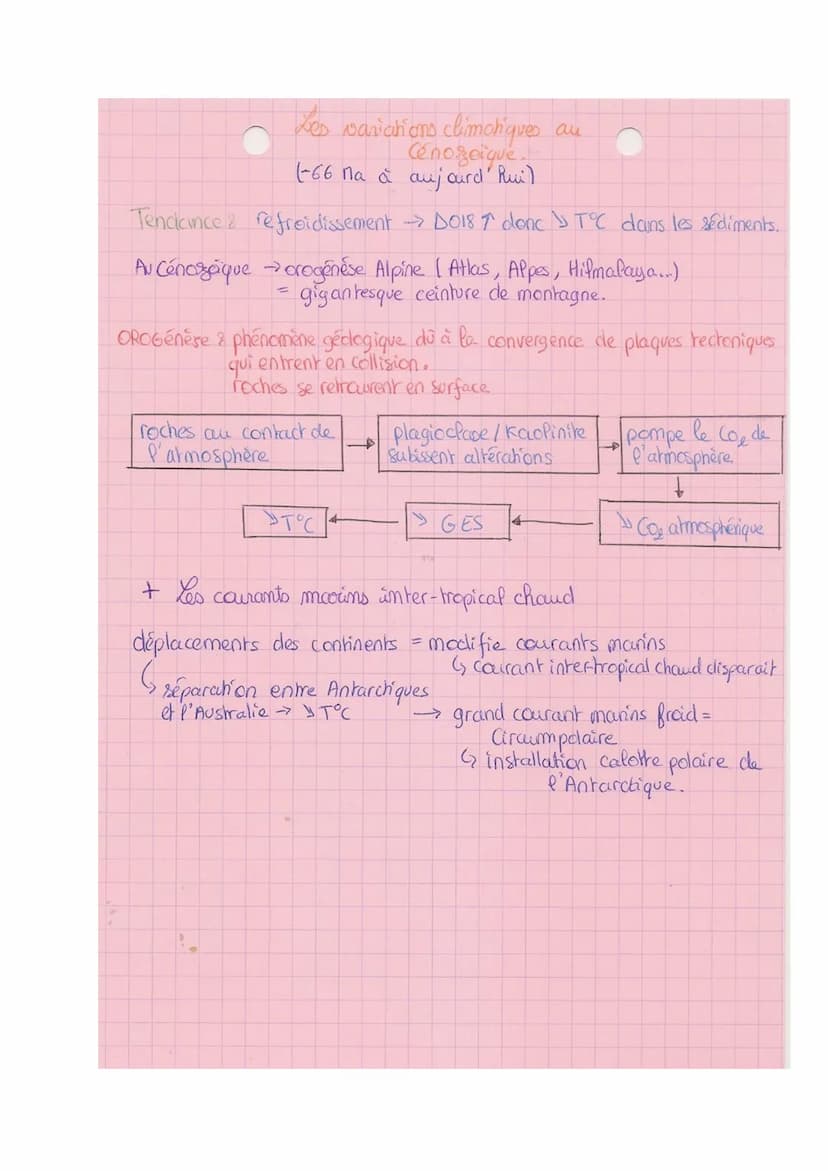 Les variations climatiques au
Cénozoïque.
(-66 Ma à aujourd'hui)
Tendance : refroidissement → DO18 ↑ donc ↘ T°C dans les sédiments.
Au Cénozoïque → orogénèse Alpine (Atlas, Alpes, Hilmalaya...)
= gigantesque ceinture de montagne.
OROGénèse : phénomène géologique dû à la convergence de plaques tectoniques
qui entrent en collision.
roches se retrouvent en surface
roches au contact de
l'atmosphère
→
plagioclase / Kaolinite
subissent altérations
→
pompe le CO₂ de
l'atmosphère
↓
↘ CO₂ atmosphérique
←
↘ GES
←
↘ T°C
+ Les courants marins inter-tropical chaud
déplacements des continents = modifie courants marins
↳ courant intertropical chaud disparait
↳ séparation entre Antarctiques
et l'Australie → ↘ T°C
→ grand courant marins froid =
Circumpolaire
↳ installation calotte polaire de
l'Antarctique.